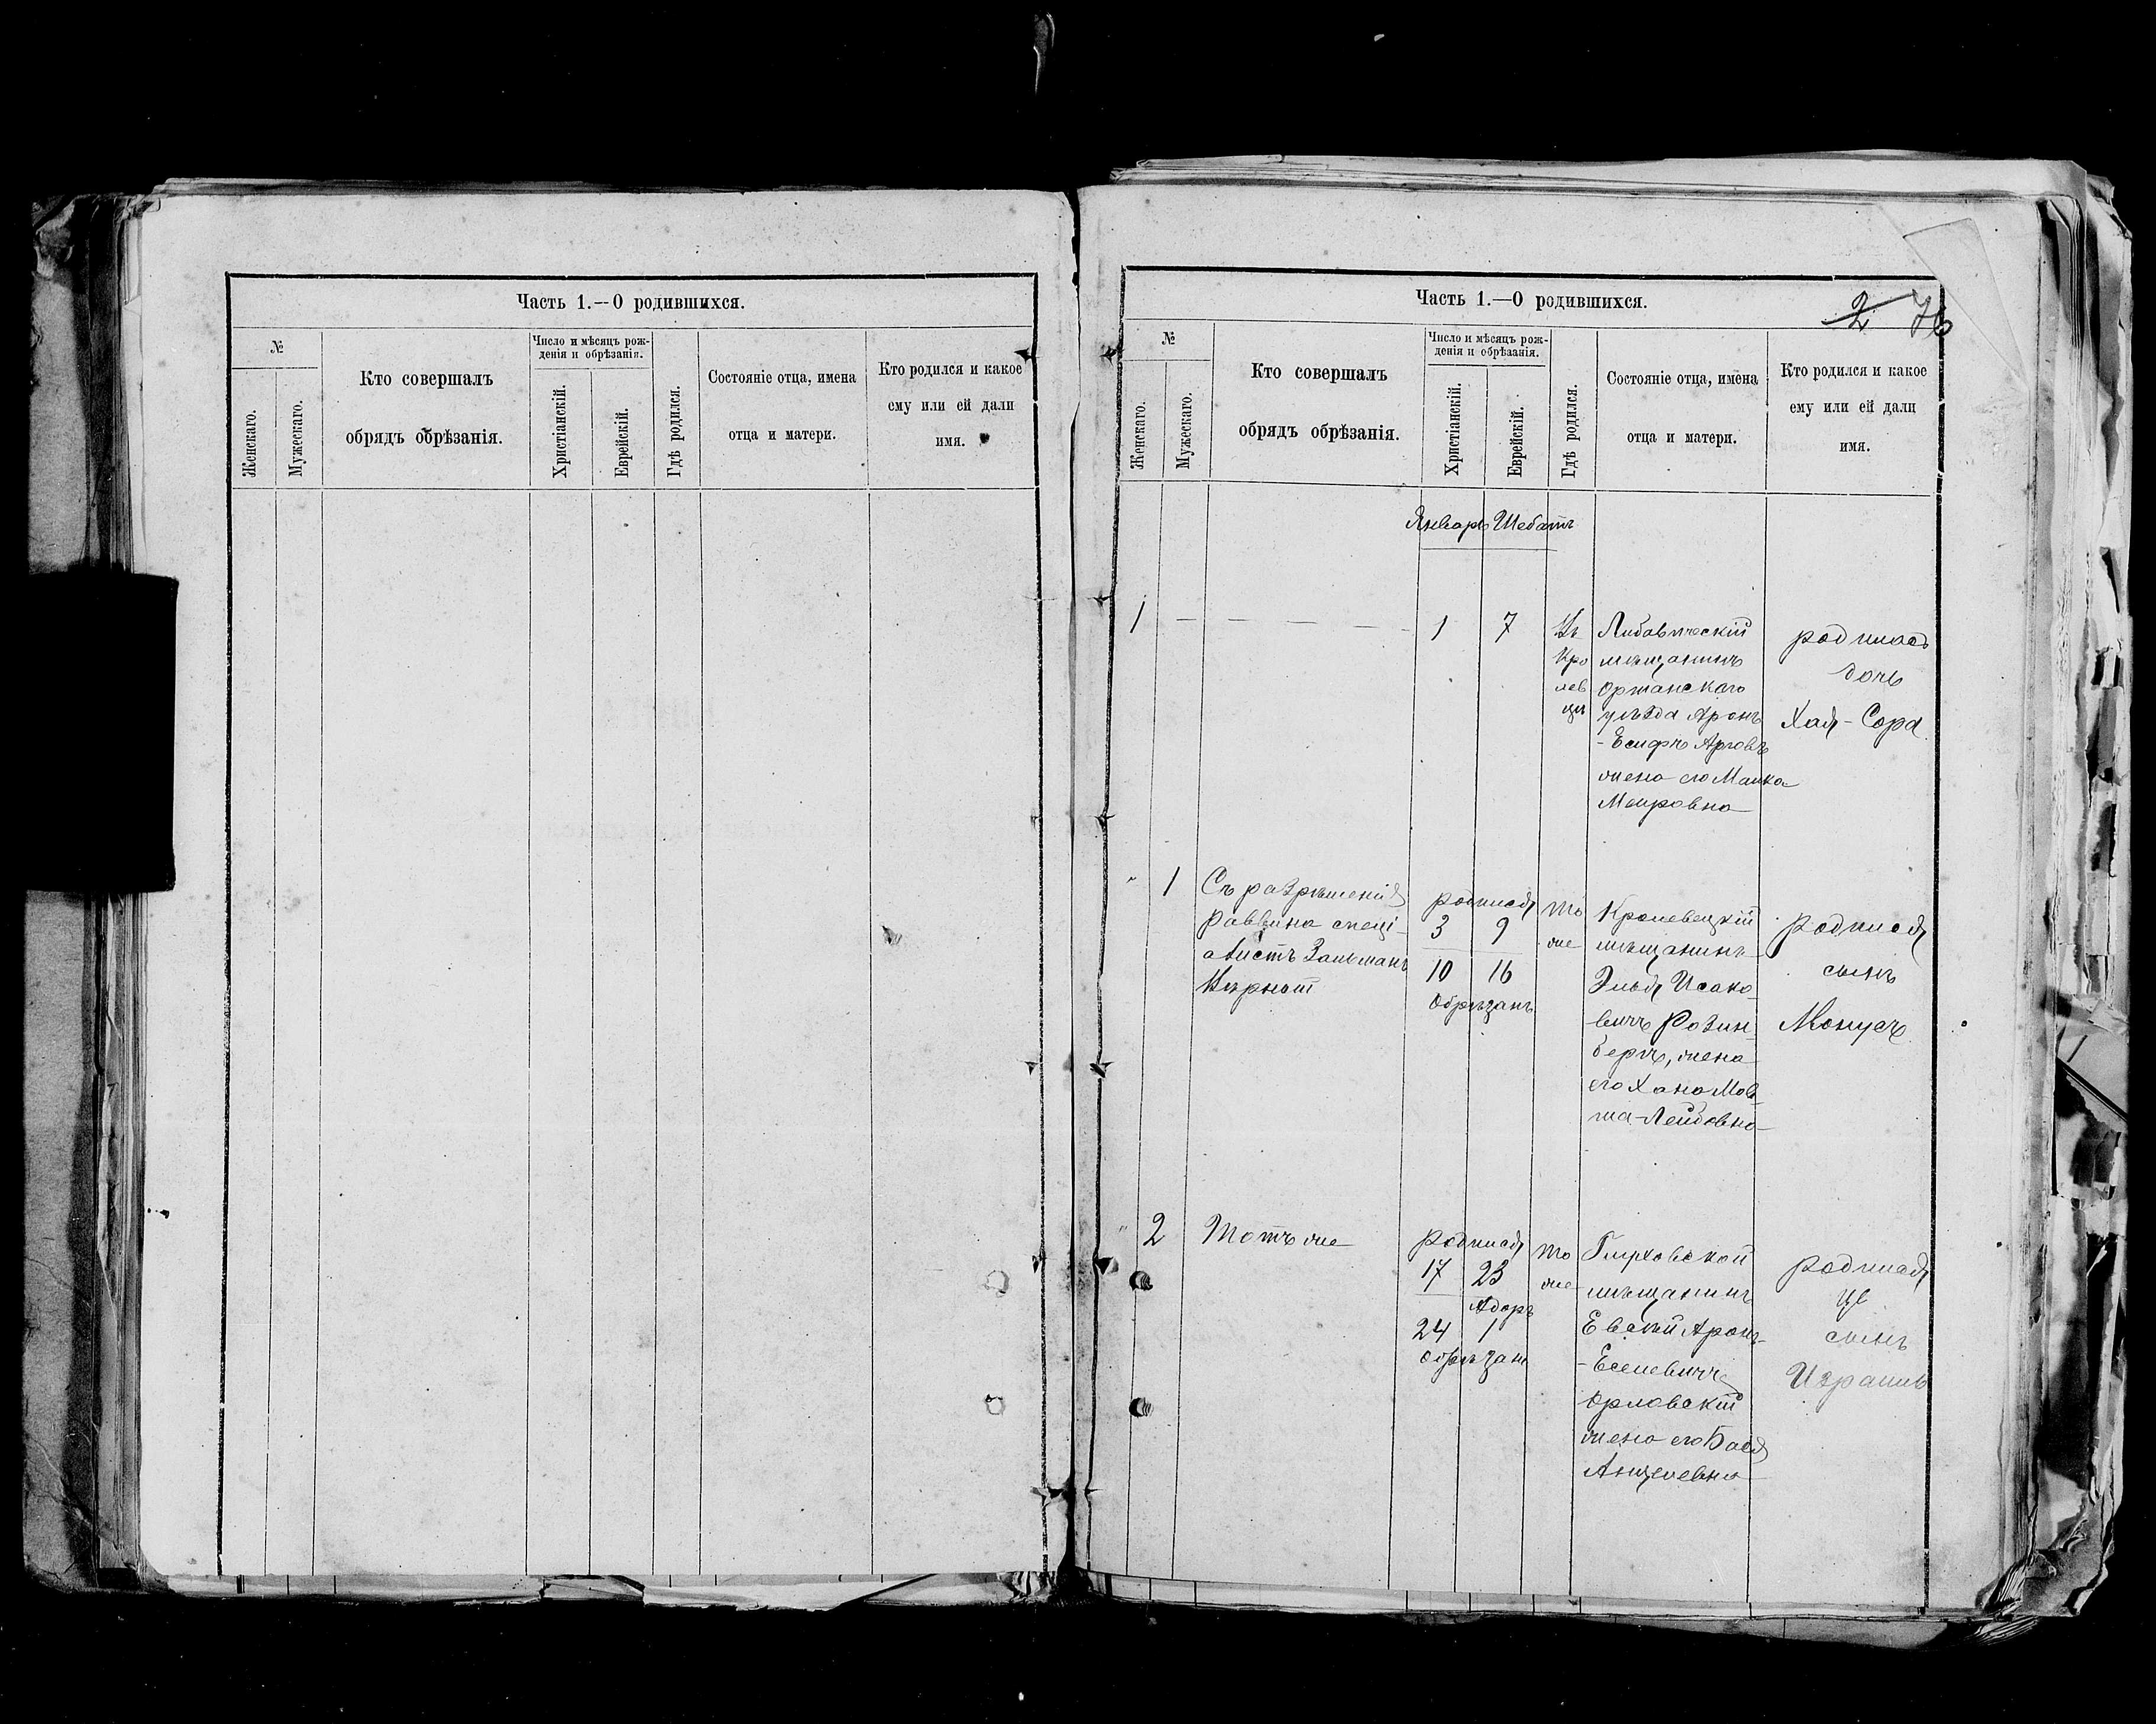 Часть 1.—О родившихся.
№
Женскаго.
Мужескаго.
Кто совершалъ
обрядъ обрѣзанія.
Число и мѣсяцъ рож-
денія и обрѣзанія.
Христіанскій.
Еврейскій.
Гдѣ родился.
Состояніе отца, имена
отца и матери.
Кто родился и какое
ему или ей дали
имя.
Часть 1.—О родившихся.
2 76
№
Женскаго.
Мужескаго.
Кто совершалъ
обрядъ обрѣзанія.
Число и мѣсяцъ рож-
денія и обрѣзанія.
Христіанскій.
Еврейскій.
Гдѣ родился.
Состояніе отца, имена
отца и матери.
Кто родился и какое
ему или ей дали
имя.
Январь Шебатъ
1 — — — — — 1 7
Въ
Кро
лев
цѣ
Либавическій
мѣщанинъ
Оршанскаго
уѣзда Аронъ
-Есифъ
жена его Малка
Меировна
родилась
дочь
Хая-Сора
" 1
Съ разрѣшенія
раввина спеці-
алистъ Зальманъ
родился
3 9
10 16
Обрѣзанъ
то
же
Кролевецкій
мѣщанинъ
Эльья Исако-
вичъ Розин-
бергъ, жена
его Хана Мов-
ша-Лейбовна
родился
сынъ
Монусъ
" 2
Тотъ же
родился
17 23
Адаръ
24 1
Обрѣзанъ
то
же
Глуховской
мѣщанинъ
Евсей Аронъ-
-Еселевичъ
Орловскій
жена его Бася
Анцелевна
родился
сынъ
Израиль